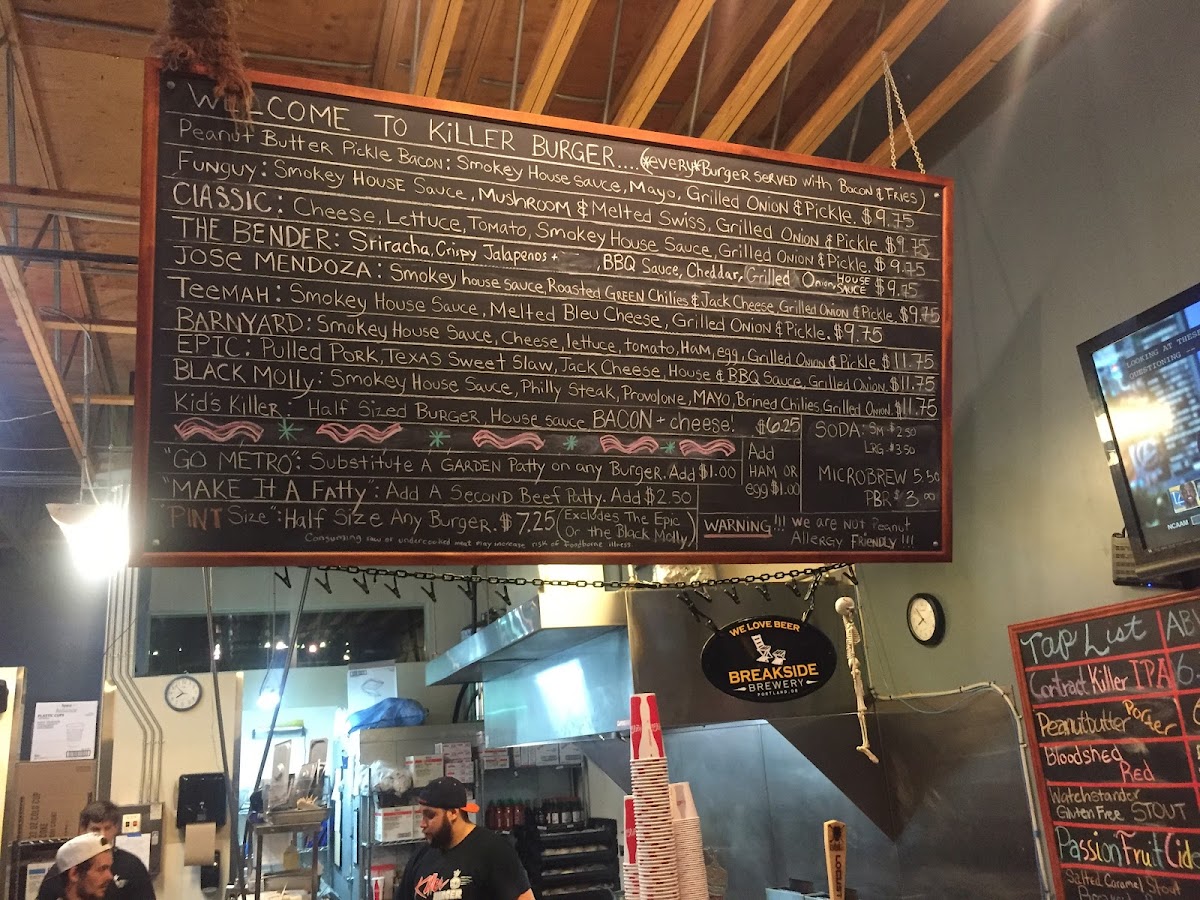 WELCOME TO KiLLER BURGER....(*EVERY*BURGER SERVED WITH BACON & FRIES)
Peanut Butter Pickle Bacon: Smokey House Sauce, Mayo, Grilled Onion & Pickle. $9.75
FUNGUY: Smokey House Sauce, Mushroom & Melted Swiss, Grilled Onion & Pickle $9.75
CLASSIC: Cheese, Lettuce, Tomato, Smokey House Sauce, Grilled Onion & Pickle. $9.75
THE BENDER: Sriracha, Crispy Jalapenos + , BBQ Sauce, Cheddar, Grilled Onion, HOUSE SAUCE $9.75
JOSE MENDOZA: Smokey house sauce, Roasted GREEN Chilies & Jack Cheese, Grilled Onion & Pickle. $9.75
TeeMAH: Smokey House Sauce, Melted Bleu Cheese, Grilled Onion & Pickle. $9.75
BARNYARD: Smokey House Sauce, Cheese, lettuce, tomato, Ham, egg, Grilled Onion & Pickle $11.75
EPIC: Pulled Pork, Texas Sweet Slaw, Jack Cheese, House & BBQ Sauce, Grilled Onion. $11.75
BLACK Molly: Smokey House Sauce, Philly Steak, Provolone, MAYO, Brined Chilies, Grilled Onion. $11.75
Kid's Killer: Half Sized Burger House sauce BACON + cheese! $6.25
SODA: SM $2.50
LRG $3.50
MICROBREW 5.50
PBR $3.00
"GO METRO": Substitute A GARDEN Patty on any Burger. Add $1.00
Add
HAM OR
egg $1.00
"MAKE It A Fatty": Add A Second Beef Patty. Add $2.50
"PINT Size": Half Size Any Burger. $7.25 (Excludes The Epic
Or the Black Molly)
WARNING!!! We are not Peanut
Allergy Friendly!!!
Consuming raw or undercooked meat may increase risk of foodborne illness.
WE LOVE BEER
BREAKSIDE
BREWERY
PORTLAND, OR
LOOKING AT THESE
QUESTIONING
NCAAM
Tap List AB
Contract Killer IPA 6
Peanutbutter Porter
Bloodshed
Red
Watchstander
Gluten Free STOUT
Passion Fruit Cide
Salted Caramel Stout
Killer